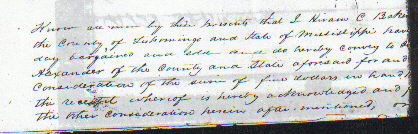 Know all men by these presents that I Hiram C Baker
the County of Tishomingo and State of Mississippi have
day bargained and sold and do hereby convey to
Alexander of the County and State aforesaid for and
Consideration of the sum of five dollars in hand
the receipt whereof is hereby acknowledged and
the other consideration herein after mentioned,